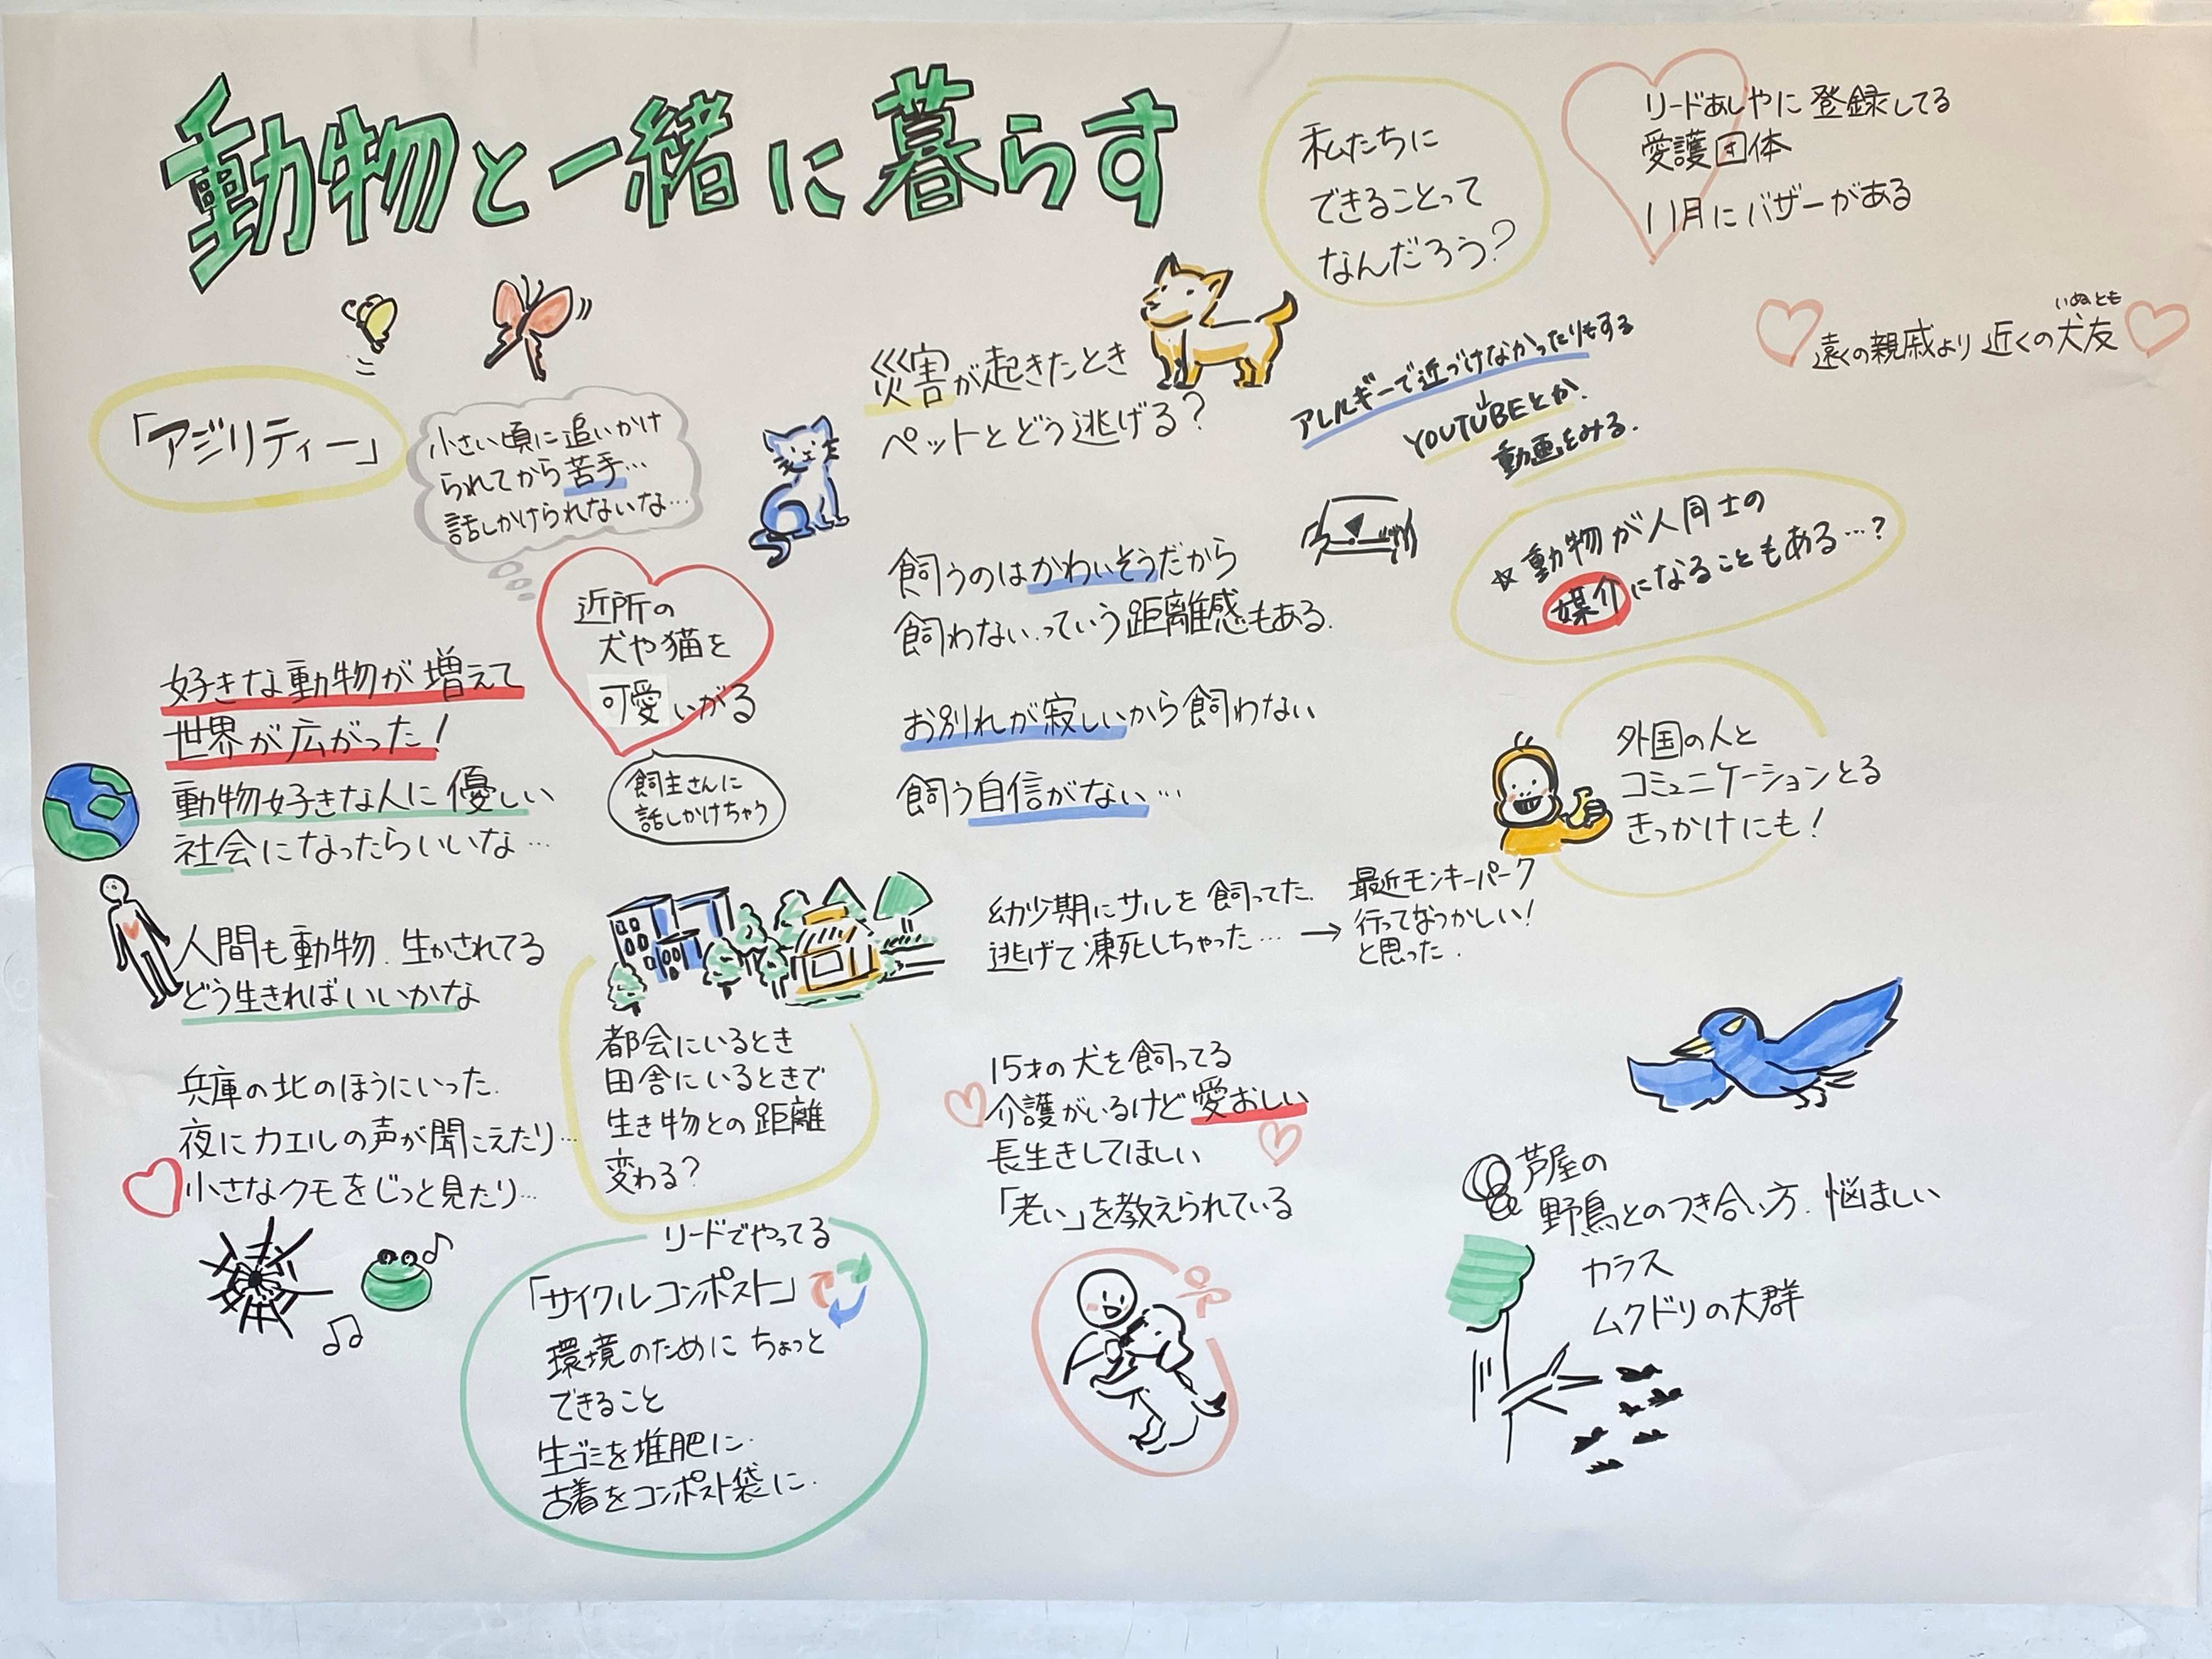 動物と一緒に暮らす
私たちに
できることって
なんだろう?
リードあしやに登録してる
愛護団体
11月にバザーがある
いぬとも
遠くの親戚より近くの犬友
「アジリティー」
小さい頃に追いかけ
られてから苦手…
話しかけられないな…
災害が起きたとき
ペットとどう逃げる?
アレルギーで近づけなかったりもする
↓
YOUTUBEとか
動画をみる.
近所の
犬や猫を
可愛いがる
飼主さんに
話しかけちゃう
飼うのはかわいそうだから
飼わない.っていう距離感もある.
お別れが寂しいから飼わない
飼う自信がない…
☆動物が人同士の
媒介になることもある…?
外国の人と
コミュニケーションとる
きっかけにも!
好きな動物が増えて
世界が広がった!
動物好きな人に優しい
社会になったらいいな…
人間も動物.生かされてる
どう生きればいいかな
兵庫の北のほうにいった.
夜にカエルの声が聞こえたり…
小さなクモをじっと見たり…
都会にいるとき
田舎にいるときで
生き物との距離
変わる?
幼少期にサルを飼ってた.
逃げて凍死しちゃった… →
最近モンキーパーク
行ってなつかしい!
と思った.
15才の犬を飼ってる
介護がいるけど愛おしい
長生きしてほしい
「老い」を教えられている
リードでやってる
「サイクルコンポスト」
環境のためにちょっと
できること
生ゴミを堆肥に.
古着をコンポスト袋に.
芦屋の
野鳥とのつき合い方.悩ましい
カラス
ムクドリの大群